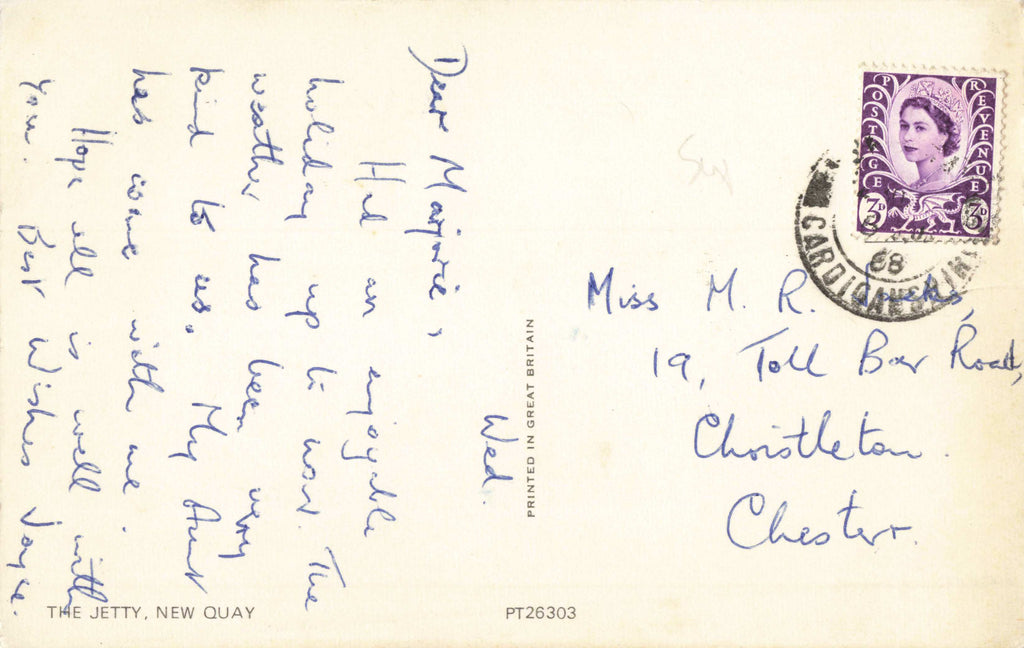 Wed.
Dear Marjorie,
Had an enjoyable
holiday up to now. The
weather has been very
kind to us. My Aunt
has come with me.
Hope all is well with
you. Best Wishes Joyce.
THE JETTY, NEW QUAY
PT26303
PRINTED IN GREAT BRITAIN
POSTAGE
REVENUE
3D
3D
68
CARDIGANSHIRE
Miss M. R.
19, Toll Bar Road,
Christleton.
Chester.